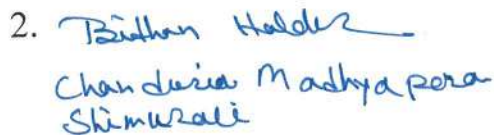 2. Bithan Halder
Chanduria Madhyapara
Shimurali